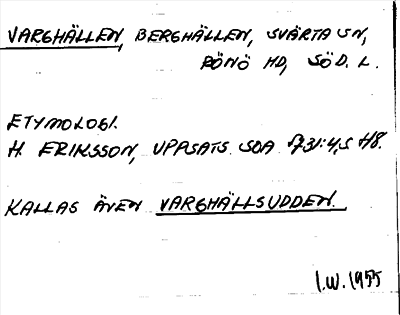 VARGHÄLLEN, BERGHÄLLEN, SVÄRTA SN,
RÖNÖ HD, SÖD. L.
ETYMOLOGI.
H. ERIKSSON, UPPSATS SOA 
KALLAS ÄVEN VARGHÄLLSUDDEN.
I.W. 1955